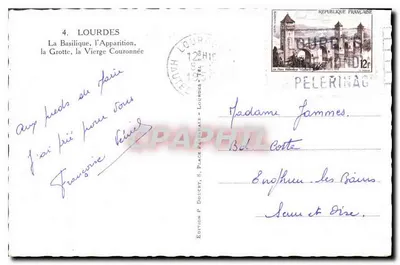 4. LOURDES
La Basilique, l'Apparition,
la Grotte, la Vierge Couronnée
Aux pieds de Marie
j'ai prié pour vous
Françoise
EDITION P. DOUCET, 2, PLACE
LOURDES
12H
RÉPUBLIQUE FRANÇAISE
12F
PELERINAG
Madame Jammes.
Bel Costa
Enghien-les-Bains
Seine et Oise.
CPAPHIL.com